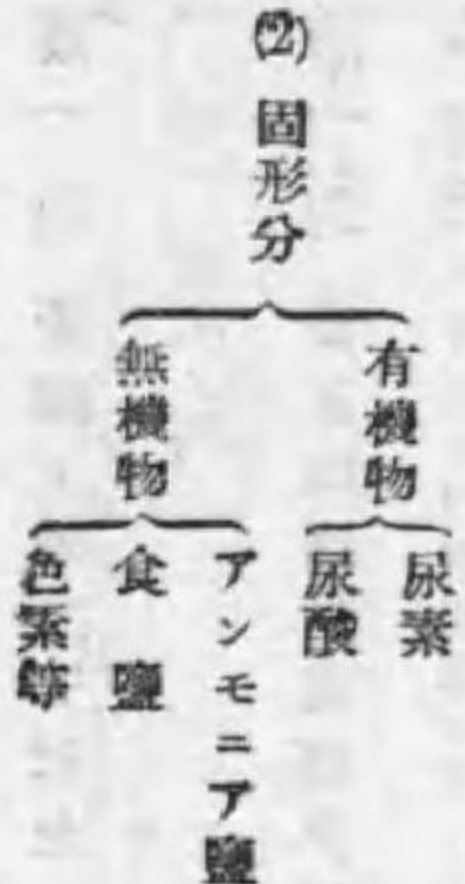 (2) 固形分
有機物
尿素
尿酸
無機物
アンモニア鹽
食鹽
色素等